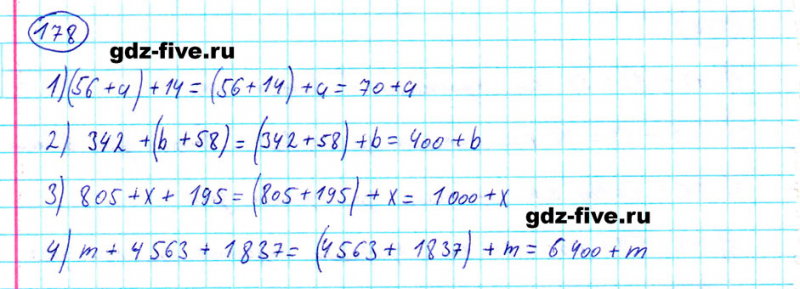 178
gdz-five.ru
1) (56 + a) + 14 = (56 + 14) + a = 70 + a
2) 342 + (b + 58) = (342 + 58) + b = 400 + b
3) 805 + x + 195 = (805 + 195) + x = 1000 + x
gdz-five.ru
4) m + 4563 + 1837 = (4563 + 1837) + m = 6400 + m